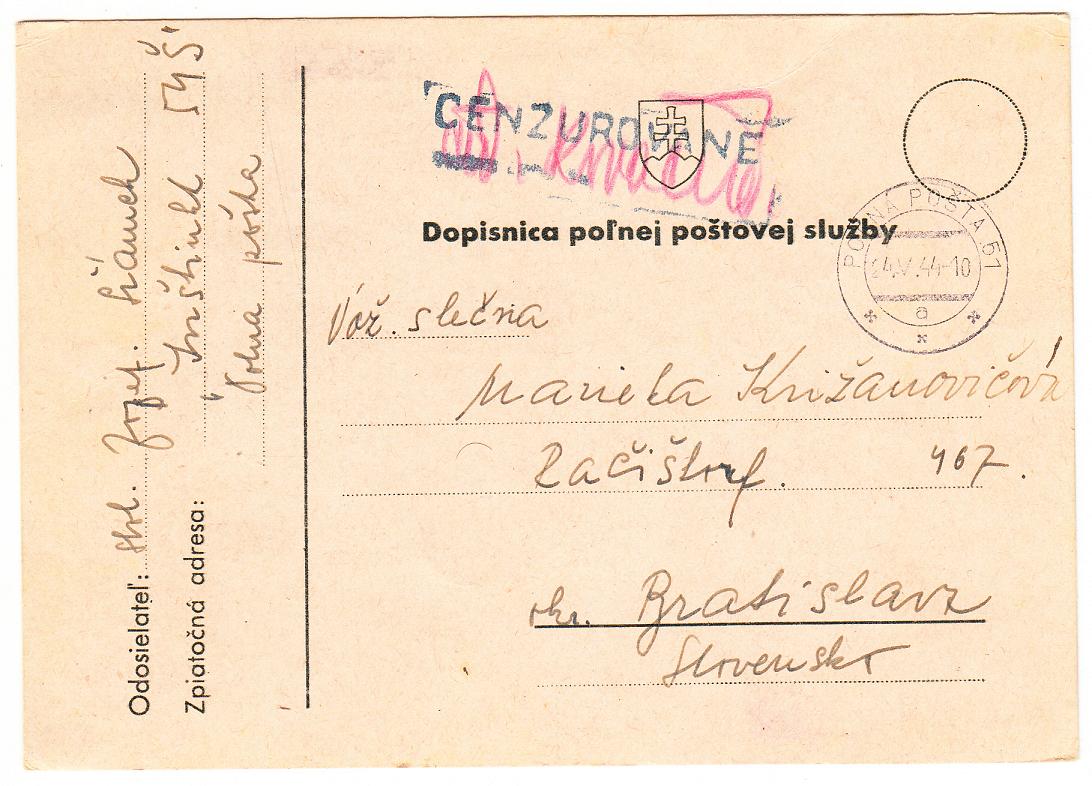 CENZUROVANÉ
Dopisnica poľnej poštovej služby
POĽNÁ POŠTA 51
24.V.44-10
a
Váž. slečna
Mariela Križanovičová
Račištorf. 467.
okr. Bratislava
Slovensko
Odosielateľ: Jozef
Zpiatočná adresa: 54 Š
Poľná pošta